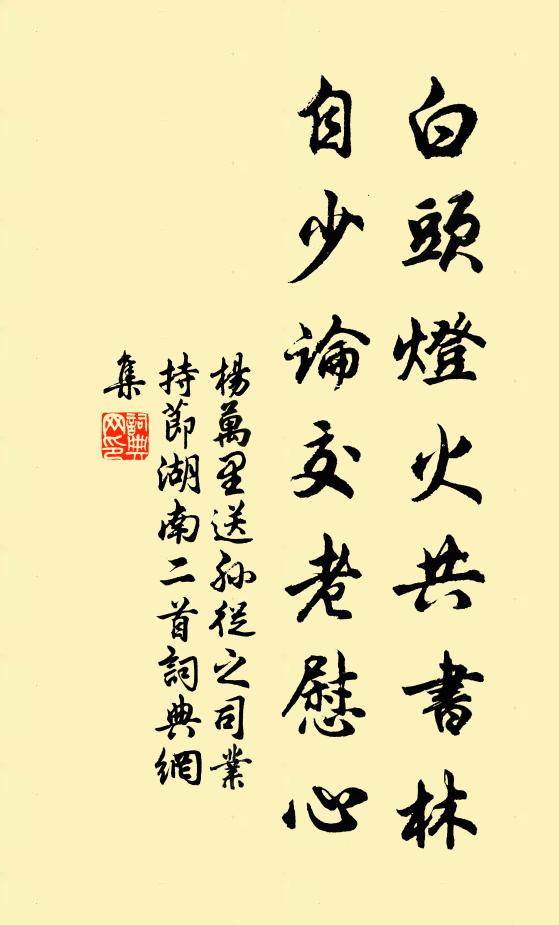 白頭燈火共書林
自少論交老慰心
楊萬里送孫從之司業
持節湖南二首詞典網
集
詞典
网印